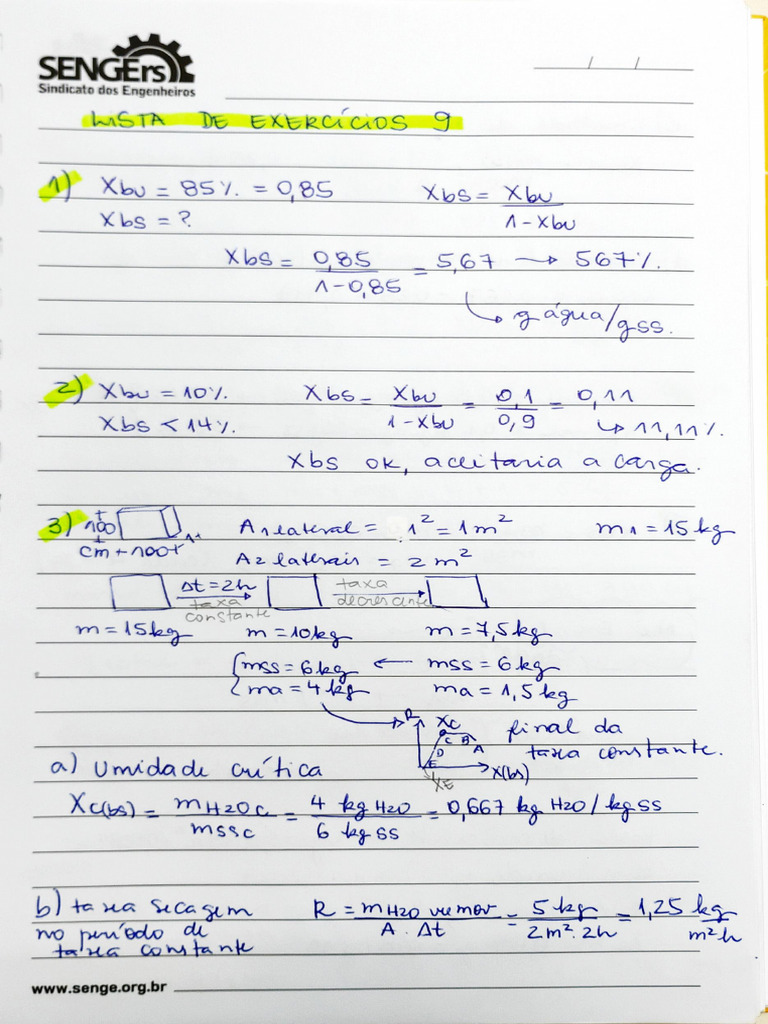 SENGERS
Sindicato dos Engenheiros
/ /
LISTA DE EXERCÍCIOS 9
1) Xbu = 85% = 0,85 Xbs = Xbu / 1-Xbu
Xbs = ?
Xbs = 0,85 / 1-0,85 = 5,67 → 567%.
↳ g água/gss.
2) Xbu = 10% Xbs = Xbu / 1-Xbu = 0,1 / 0,9 = 0,11
Xbs < 14%. ↳ 11,11%.
Xbs ok, aceitaria a carga.
3) 100 cm 100 A1 lateral = 1² = 1m² m1 = 15 kg
A2 laterais = 2 m²
Δt = 2h taxa constante taxa decrescente
m = 15 kg m = 10 kg m = 7,5 kg
{mss = 6 kg ← mss = 6 kg
{ma = 4 kg ma = 1,5 kg
R Xc C B A D E X(bs) XE final da taxa constante.
a) Umidade crítica
Xc(bs) = mH2Oc / mssc = 4 kg H2O / 6 kg ss = 0,667 kg H2O / kg ss
b) taxa secagem no período de taxa constante R = mH2O / A . Δt = 5 kg / 2m² . 2h = 1,25 kg / m²h
www.senge.org.br